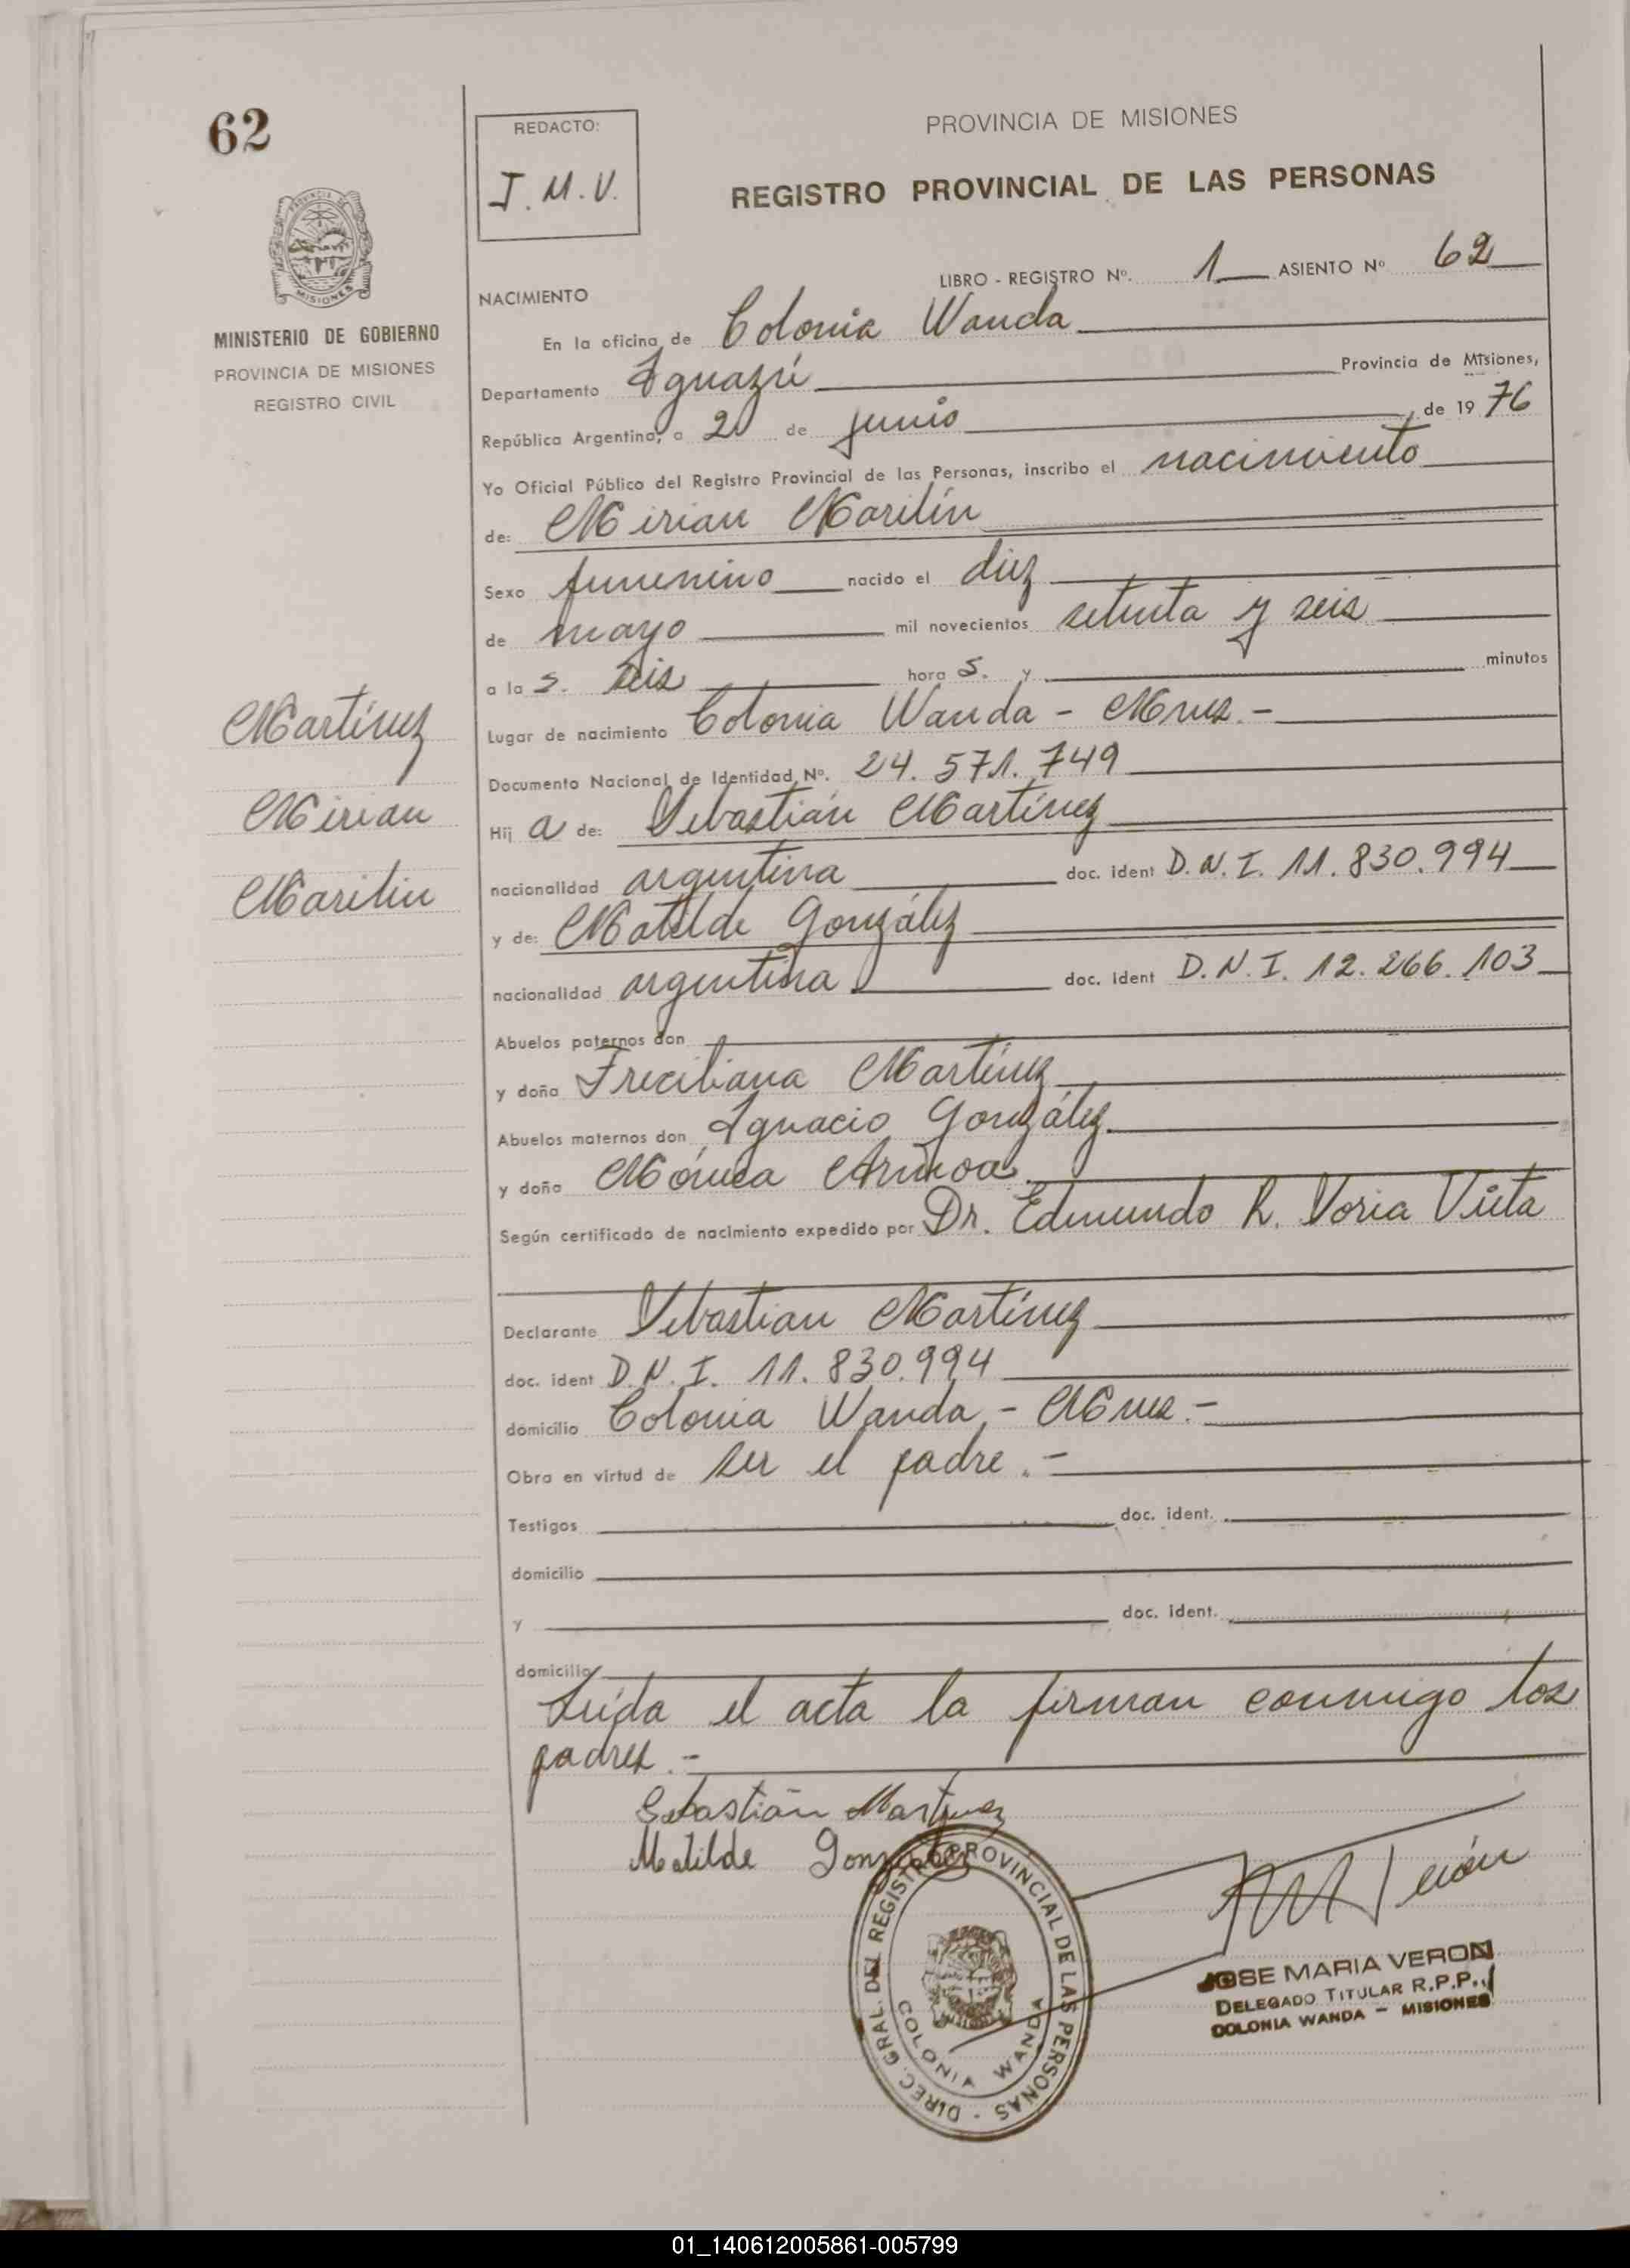 62
REDACTO:
J. M. V.
PROVINCIA DE MISIONES
REGISTRO PROVINCIAL DE LAS PERSONAS
MISIONES
MINISTERIO DE GOBIERNO
PROVINCIA DE MISIONES
REGISTRO CIVIL
LIBRO - REGISTRO Nº. 1 ASIENTO Nº 62
NACIMIENTO
En la oficina de Colonia Wanda
Departamento Iguazú Provincia de Misiones,
República Argentina, a 20 de junio de 1976
Yo Oficial Público del Registro Provincial de las Personas, inscribo el nacimiento
de: Mirian Marilín
Sexo femenino nacido el diez
de mayo mil novecientos setenta y seis
a las. seis horas. y minutos
Martínez
Mirian
Marilin
Lugar de nacimiento Colonia Wanda - Mnes.-
Documento Nacional de Identidad Nº. 24.571.749
Hija de: Sebastián Martínez
nacionalidad argentina doc. ident D.N.I. 11.830.994
y de: Matilde González
nacionalidad argentina doc. ident D.N.I. 12.266.103
Abuelos paternos don
y doña Freciliana Martínez
Abuelos maternos don Ignacio González.
y doña Mónica
Según certificado de nacimiento expedido por Dr. Edmundo R. Voria Vieta
Declarante Sebastian Martínez
doc. ident D.N.I. 11.830.994
domicilio Colonia Wanda - Mnes.-
Obra en virtud de ser el padre.-
Testigos doc. ident.
domicilio
y doc. ident.
domicilio
Leída el acta la firman conmigo los
padres.-
Sebastián Martinez
Matilde Gonzalez
DIREC. GRAL. DEL REGISTRO PROVINCIAL DE LAS PERSONAS -
COLONIA WANDA
JOSE MARIA VERON
DELEGADO TITULAR R.P.P.
COLONIA WANDA - MISIONES
01_140612005861-005799